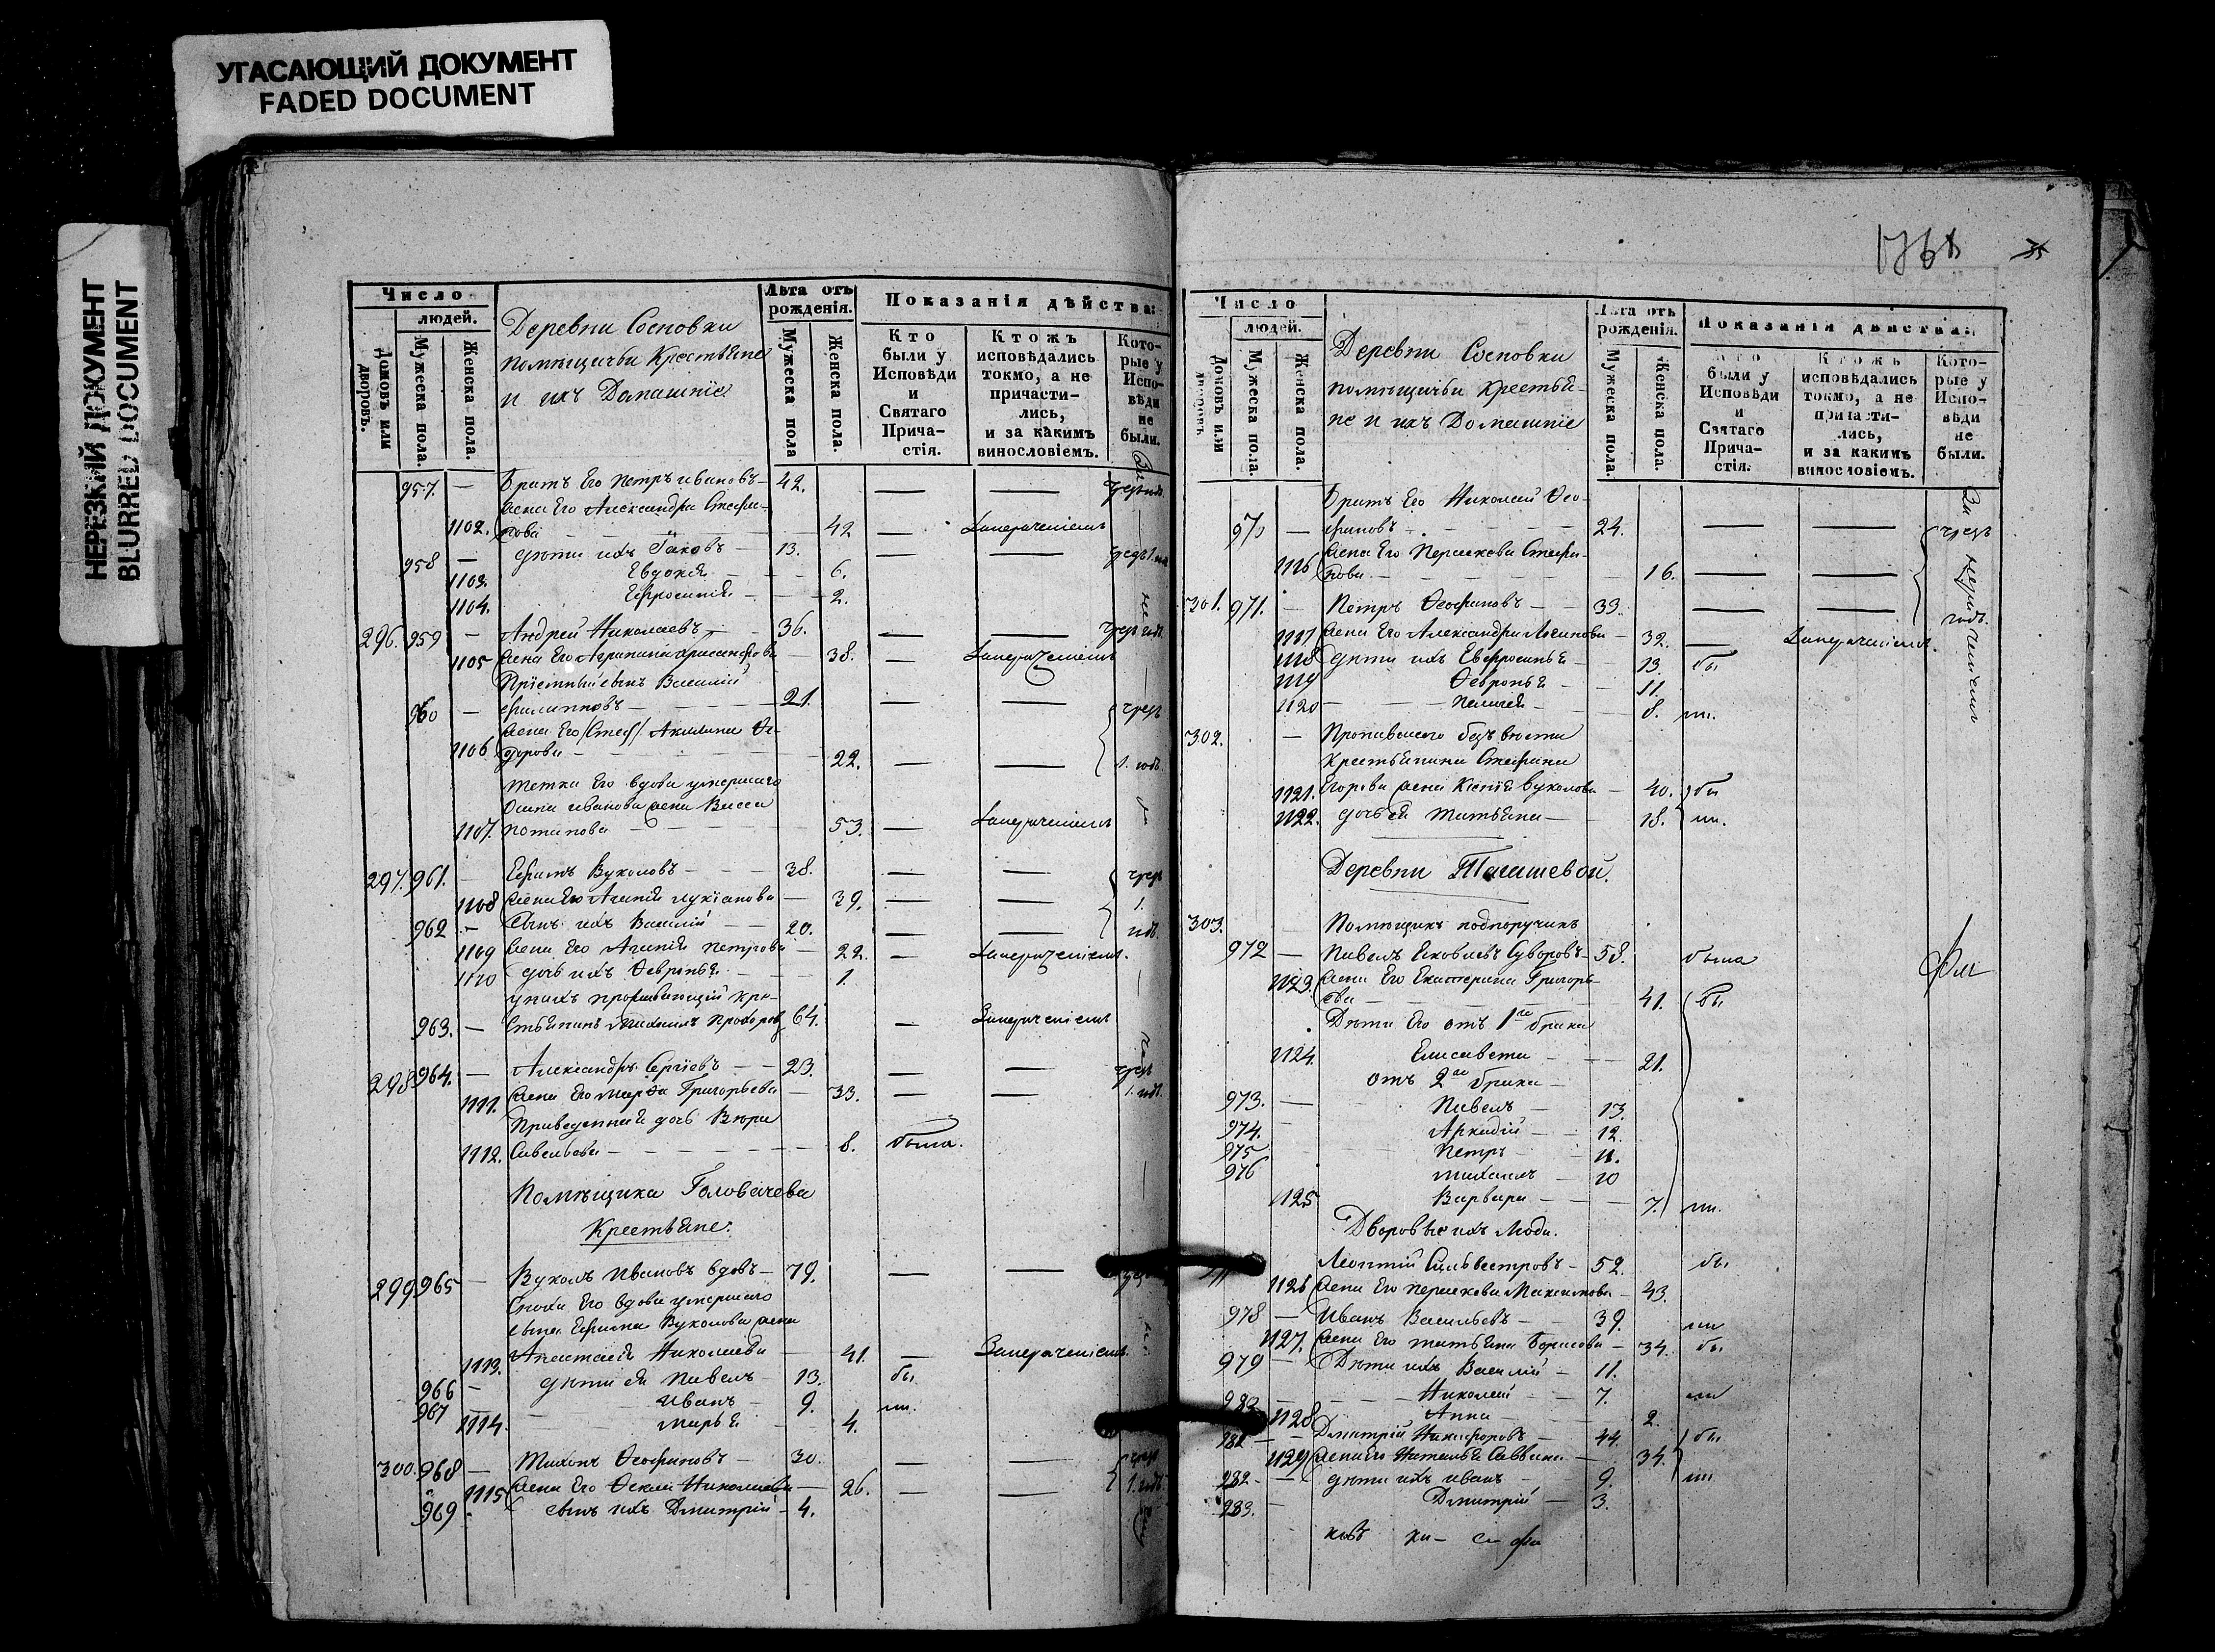 УГАСАЮЩИЙ ДОКУМЕНТ
FADED DOCUMENT
НЕРЕЗКИЙ ДОКУМЕНТ
BLURRED DOCUMENT
Число
людей.
Домовъ или дворовъ.
Мужеска пола.
Женска пола.
Деревни Сосновки
помѣщичьи Крестьяне
и ихъ Домашніе
Лѣта отъ рожденія.
Мужеска пола
Женска пола.
Показанія дѣйства:
Кто были у Исповѣди и Святаго Причастія.
Ктожъ исповѣдались токмо, а не причастились, и за какимъ винословіемъ.
Которые у Исповѣди не были.
957. — Братъ Его Петръ Ивановъ — 42. — —
жена Его Александра Стефа-
1102. нова — 42 —
958 — дѣти ихъ Іаковъ — 13. — —
1103. Евдокія — 6.
1104. Ефросинія — 2.
296. 959 — Андрей Николаевъ — 36. — —
1105 жена Его Агрипина — 38. —
Пріемный сынъ Василій
960 — Филипповъ — 21. — —
жена Его Акилина Ѳе-
1106 дорова — 22. — — 1. годъ
тетка Его вдова умершаго
Осипа Иванова жена Васса
1107. Потапова — 53. —
297. 961. — Ефимъ Вуколовъ — 38. — —
1108 жена Его Агапія Лукіанова — 39. — — 1.
962 — Сынъ ихъ Василій — 20. — —
1109 жена Его Агапія Петрова — 22. —
1110 дочь ихъ Ѳевронья — 1.
у нихъ проживающій кре-
963. — стьянинъ Михаилъ Прохоровъ 64. —
298 964. — Александръ Сергіевъ — 23. — —
1111. жена Его Марѳа Григорьева — 33. — — 1. годъ
Приведенная дочь Вѣра
1112. Савельева — 8. была.
Помѣщика Головачева
Крестьяне.
299 965 — Вуколъ Ивановъ вдовъ — 79. — —
Сноха Его вдова умершаго
сына Ефима Вуколова жена
1113. Анастасія Николаева — 41. —
966 — дѣти ея Павелъ — 13. бы
967 — Иванъ — 9. ли.
1114. Марья — 4.
300. 968 — Тихонъ Ѳеофановъ — 30. — —
1115 жена Его Ѳекла Николаева — 26. — — 1. годъ
969 сынъ ихъ Димитрій — 4.
Число
людей.
Домовъ или дворовъ
Мужеска пола.
Женска пола.
Деревни Сосновки
помѣщичьи крестья-
не и ихъ Домашніе
Лѣта отъ рожденія.
Мужеска пола.
Женска пола.
Показанія дѣйства:
Кто были у Исповѣди и Святаго Причастія.
Ктожъ исповѣдались токмо, а не причастились, и за какимъ винословіемъ.
Которые у Исповѣди не были.
Братъ Его Николай Ѳео-
— фановъ — 24. — —
жена Его Парасковья Стефа-
1116 нова — 16. — —
301. 971. — Петръ Ѳеофановъ — 33. — —
1117 жена Его Александра — 32. —
1118 дѣти ихъ Евфросинья — 13. бы
1119 Ѳевронья — 11.
1120 Пелагея — 8. ли.
302. — Пропавшаго безъ вѣсти
крестьянина Стефана
1121. Егорова жена Ксенія Вуколова — 40. бы
1122. дочь ея Татьяна — 18. ли.
Деревни
303. — Помѣщикъ подпоручикъ
972 — Павелъ Яковлевъ Суворовъ — 58. была
1123. жена Его Екатерина Григорь-
ева — 41. бы
Дѣти Его отъ 1го брака
1124. Елисавета — 21.
отъ 2го брака —
973. — Павелъ — 13.
974. — Аркадій — 12.
975 Петръ — 11.
976 Михаилъ — 10
1125 Варвара — 7. ли.
Дворовые ихъ люди.
Леонтій Сильвестровъ — 52. бы
1126 жена Его Парасковья Максимова — 43.
978 — Иванъ Васильевъ — 39. ли
1127. жена Его Татьяна Борисова — 34. бы
979 — Дѣти ихъ Василій — 11.
Николай — 7. ли
1128 Анна — 2.
Димитрій Никифоровъ — 44. бы
1129 жена Его Наталья Саввина — 34.
982 — дѣти ихъ Иванъ — 9. ли
983. — Димитрій — 3.